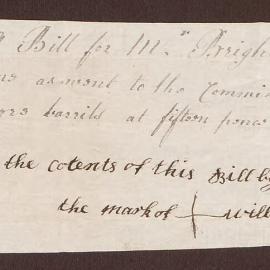 Bill for Mr Brigh
as went to the Commin
barrils at fifteen pence
the cotents of this Bill by
the mark of + will